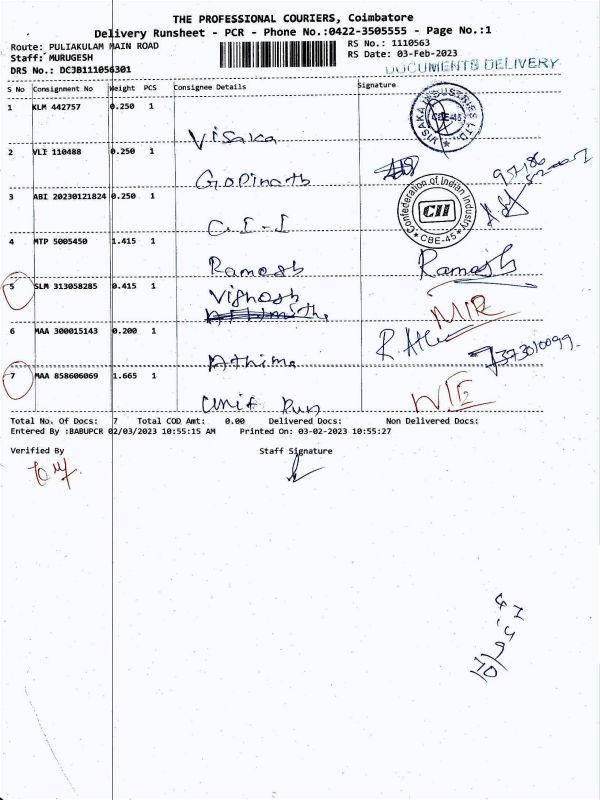 THE PROFESSIONAL COURIERS, Coimbatore
Delivery Runsheet - PCR - Phone No.:0422-3505555 - Page No.:1
Route: PULIAKULAM MAIN ROAD RS No.: 1110563
Staff: MURUGESH RS Date: 03-Feb-2023
DRS No.: DCJB111056301 DOCUMENTS DELIVERY
S No Consignment No Weight PCS Consignee Details Signature
1 KLM 442757 0.250 1
VISAKA INDUSTRIES LTD. CBE-45
Visaka
2 VLI 110488 0.250 1
Gopinath
3 ABI 20230121824 0.250 1
Confederation of Indian Industry CII CBE-45
C.I-I
4 MTP 5005450 1.415 1
Ramesh Ramesh
5 SLM 313058285 0.415 1
Vighosh
6 MAA 300015143 0.200 1
Athima R.
7 MAA 858606069 1.665 1
Unit Run
Total No. Of Docs: 7 Total COD Amt: 0.00 Delivered Docs: Non Delivered Docs:
Entered By :BABUPCR 02/03/2023 10:55:15 AM Printed On: 03-02-2023 10:55:27
Verified By Staff Signature